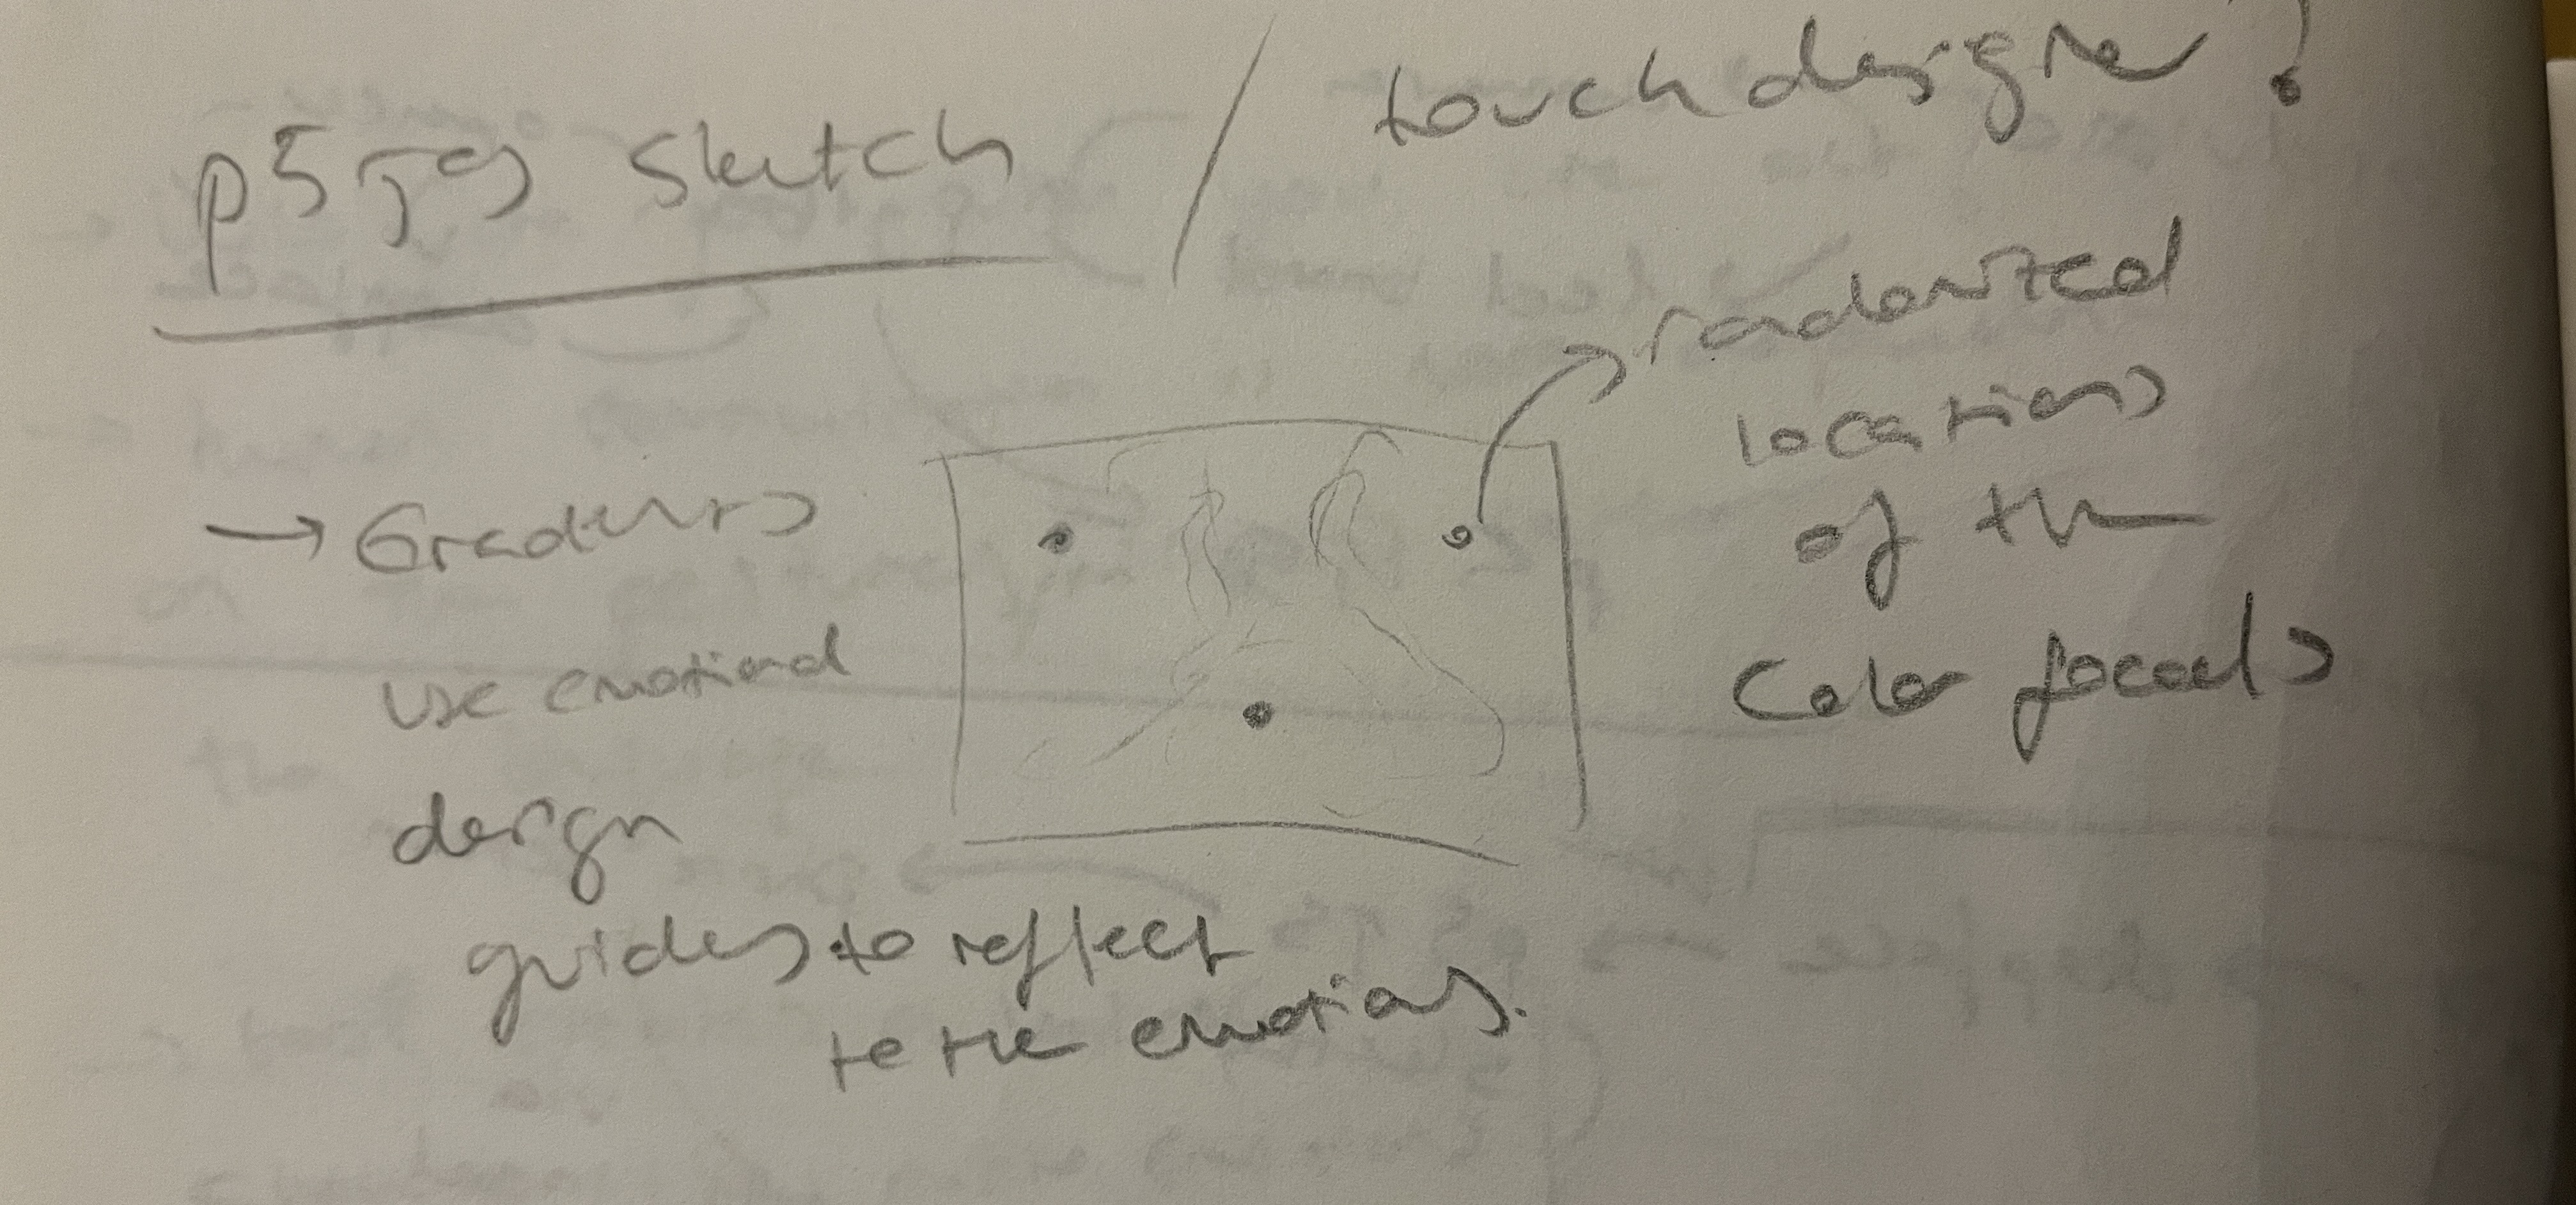 p5 js sketch / touchdesigner?
→ Gradients
use emotional
design
guides to reflect
to the emotions.
randomized
locations
of the
Color focals